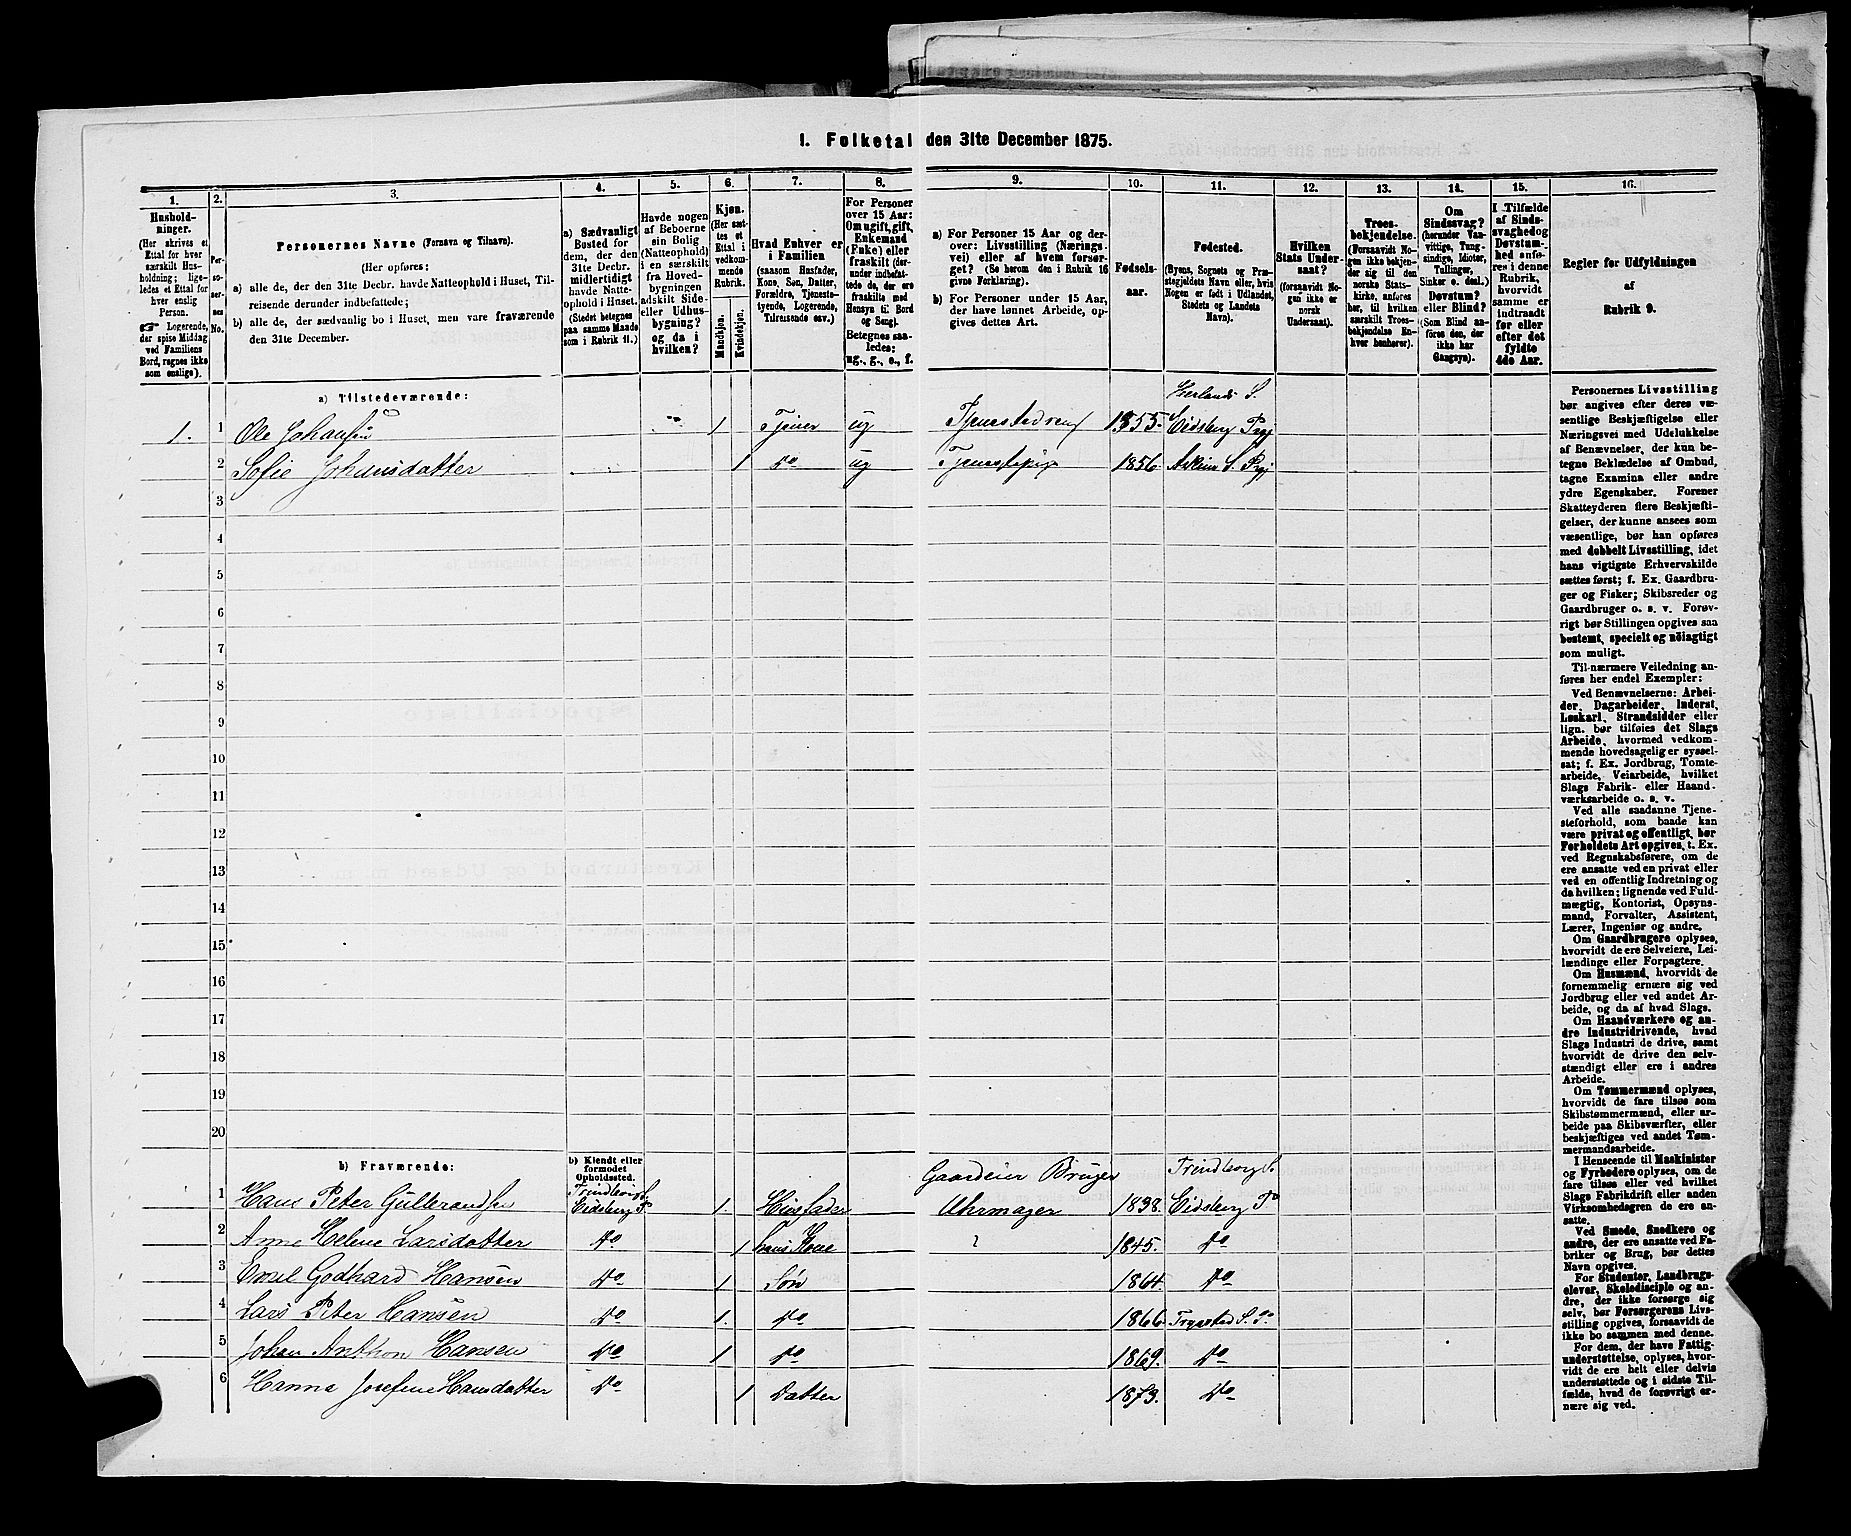 1. Folketal den 31te December 1875.
1.
2.
3.
4.
5.
6.
7.
8.
9.
10.
11.
12.
13.
14.
15.
16.
Husholdninger.
(Her skrives et
Ettal for hver
særskilt Husholdning;
ligeledes et Ettal for
hver enslig
Person.
☞ Logerende,
der spise Middag
ved Familiens
Bord, regnes ikke
som enslige).
Personernes No.
Personernes Navne (Fornavn og Tilnavn).
(Her opføres:
a) alle de, der den 31te Decbr. havde Natteophold i Huset, Tilreisende derunder indbefattede;
b) alle de, der sædvanlig bo i Huset, men vare fraværende
den 31te December.
a) Sædvanligt
Bosted for
dem, der den
31te Decbr.
midlertidigt
havde Natteophold i Huset.
(Stedet betegnes
paa samme Maade
som i Rubrik 11.)
Havde nogen
af Beboerne
sin Bolig
(Natteophold)
i en særskilt
fra Hovedbygningen
adskilt Side-
eller Udhusbygning?
og da i
hvilken?
Kjøn.
(Her sættes et
Ettal i
vedkommende
Rubrik.
Mandkjøn.
Kvindekjøn.
Hvad Enhver er
i Familien
(saasom Husfader,
Kone, Søn, Datter,
Forældre, Tjenestetyende, Logerende,
Tilreisende osv.)
For Personer
over 15 Aar:
Om ugift, gift,
Enkemand
(Enke) eller
fraskilt (derunder indbefattede de, der ere
fraskilte med
Hensyn til Bord
og Seng).
Betegnes saaledes:
ug., g., e., f.
a) For Personer 15 Aar og derover: Livsstilling (Næringsvei) eller af hvem forsørget? (Se herom den i Rubrik 16
givne Forklaring).
b) For Personer under 15 Aar,
der have lønnet Arbeide, opgives dettes Art.
Fødselsaar.
Fødested.
(Byens, Sognets og Præstegjeldets Navn eller, hvis
Nogen er født i Udlandet,
Stedets og Landets
Navn).
Hvilken
Stats Undersaat?
(forsaavidt Nogen ikke er
norsk
Undersaat).
Troesbekjendelse.
(Forsaavidt Nogen ikke bekjender sig til den
norske Statskirke, anføres
her, til hvilken
særskilt Troesbekjendelse Enhver henhører).
Om
Sindssvag?
(herunder Vanvittige, Tungsindige, Idioter,
Tullinger,
Sinker o. desl.)
Døvstum?
eller Blind?
(Som Blind anføres den, der
ikke har
Gangsyn).
I Tilfælde
af Sindssvaghed og
Døvstumhed anføres i denne
Rubrik,
hvorvidt
samme er
indtraadt
før eller
efter det
fyldte
4de Aar.
Regler for Udfyldningen
af
Rubrik 9.
a) Tilstedeværende:
Herlands S.
1. 1 Ole Johansen 1 Tjener ug Tjenestedreng 1855. Eidsberg Prgj
2 Sofie Johansdatter 1 Do ug Tjenestepige 1856. Askim S. Prgj
3
4
5
6
7
8
9
10
11
12
13
14
15
16
17
18
19
20
b) Fraværende:
b) Kjendt eller
formodet
Opholdssted.
Gaardeier Bruger Trindborg S.
1 Hans Peter Gullerandsen Trindborg S. Eidsberg P 1. Husfader Uhrmager 1838. Eidsberg P
2 Anne Helene Larsdatter Do 1 hans Kone 1845. Do
3 Emil Godhard Hansen Do 1 Søn 1864. Do
4 Lars Peter Hansen Do 1. Do 1866. Trygstad S. P.
5 Johan Anthon Hansen Do 1 Do 1869. Do
6 Hanna Josefine Hansdatter Do 1 Datter 1873. Do
Personernes Livsstilling
bør angives efter deres væsentlige Beskjæftigelse eller
Næringsvei med Udelukkelse
af Benævnelser, der kun betegne Beklædelse af Ombud,
tagne Examina eller andre
ydre Egenskaber. Forener
Skatteyderen flere Beskjæftigelser, der kunne ansees som
væsentlige, bør han opføres
med dobbelt Livsstilling, idet
hans vigtigste Erhvervskilde
sættes først; f. Ex. Gaardbruger og Fisker; Skibsreder og
Gaardbruger o. s. v. Forøvrigt bør Stillingen opgives saa
bestemt, specielt og nøiagtigt
som muligt.
Til nærmere Veiledning anføres her endel Exempler:
Ved Benævnelserne: Arbeider, Dagarbeider, Inderst,
Løskarl, Strandsidder eller
lign. bør tilføies det Slags
Arbeide, hvormed vedkommende hovedsagelig er sysselsat; f. Ex. Jordbrug, Tomtearbeide, Veiarbeide, hvilket
Slags Fabrik- eller Haandværksarbeide o. s. v.
Ved alle saadanne Tjenesteforhold, som baade kan
være privat og offentligt, bør
Forholdets Art opgives, t. Ex.
ved Regnskabsførere, om de
ere ansatte ved en privat eller
ved en offentlig Indretning og
da hvilken; lignende ved Fuldmægtig, Kontorist, Opsynsmand, Forvalter, Assistent,
Lærer, Ingeniør og andre.
Om Gaardbrugere oplyses,
hvorvidt de ere Selveiere, Leilændinge eller Forpagtere.
Om Husmænd, hvorvidt de
fornemmelig ernære sig ved
Jordbrug eller ved andet Arbeide, og da af hvad Slags.
Om Haandværkere og andre Industridrivende, hvad
Slags Industri de drive, samt
hvorvidt de drive den selvstændigt eller ere i andres
Arbeide.
Om Tømmermænd oplyses,
hvorvidt de fare tilsøs som
Skibstømmermænd, eller arbeide paa Skibsværfter, eller
beskjæftiges ved andet Tømmermandsarbeide.
I Henseende til Maskinister
og Fyrbødere oplyses, om de
fare tilsøs eller ved hvilket
Slags Fabrikdrift eller anden
Virksomhedsgren de ere ansatte.
Ved Smede, Snedkere og
andre, der ere ansatte ved Fabriker og Brug, bør dettes
Navn opgives.
For Studenter, Landbrugselever, Skoledisciple og andre, der ikke forsørge sig
selv, bør Forsørgerens Livsstilling opgives, forsaavidt de
ikke bo sammen med denne.
For dem, der have Fattigunderstøttelse, oplyses, hvorvidt de ere helt eller delvis
understøttede og i sidste Tilfælde, hvad de forøvrigt ernære sig ved.